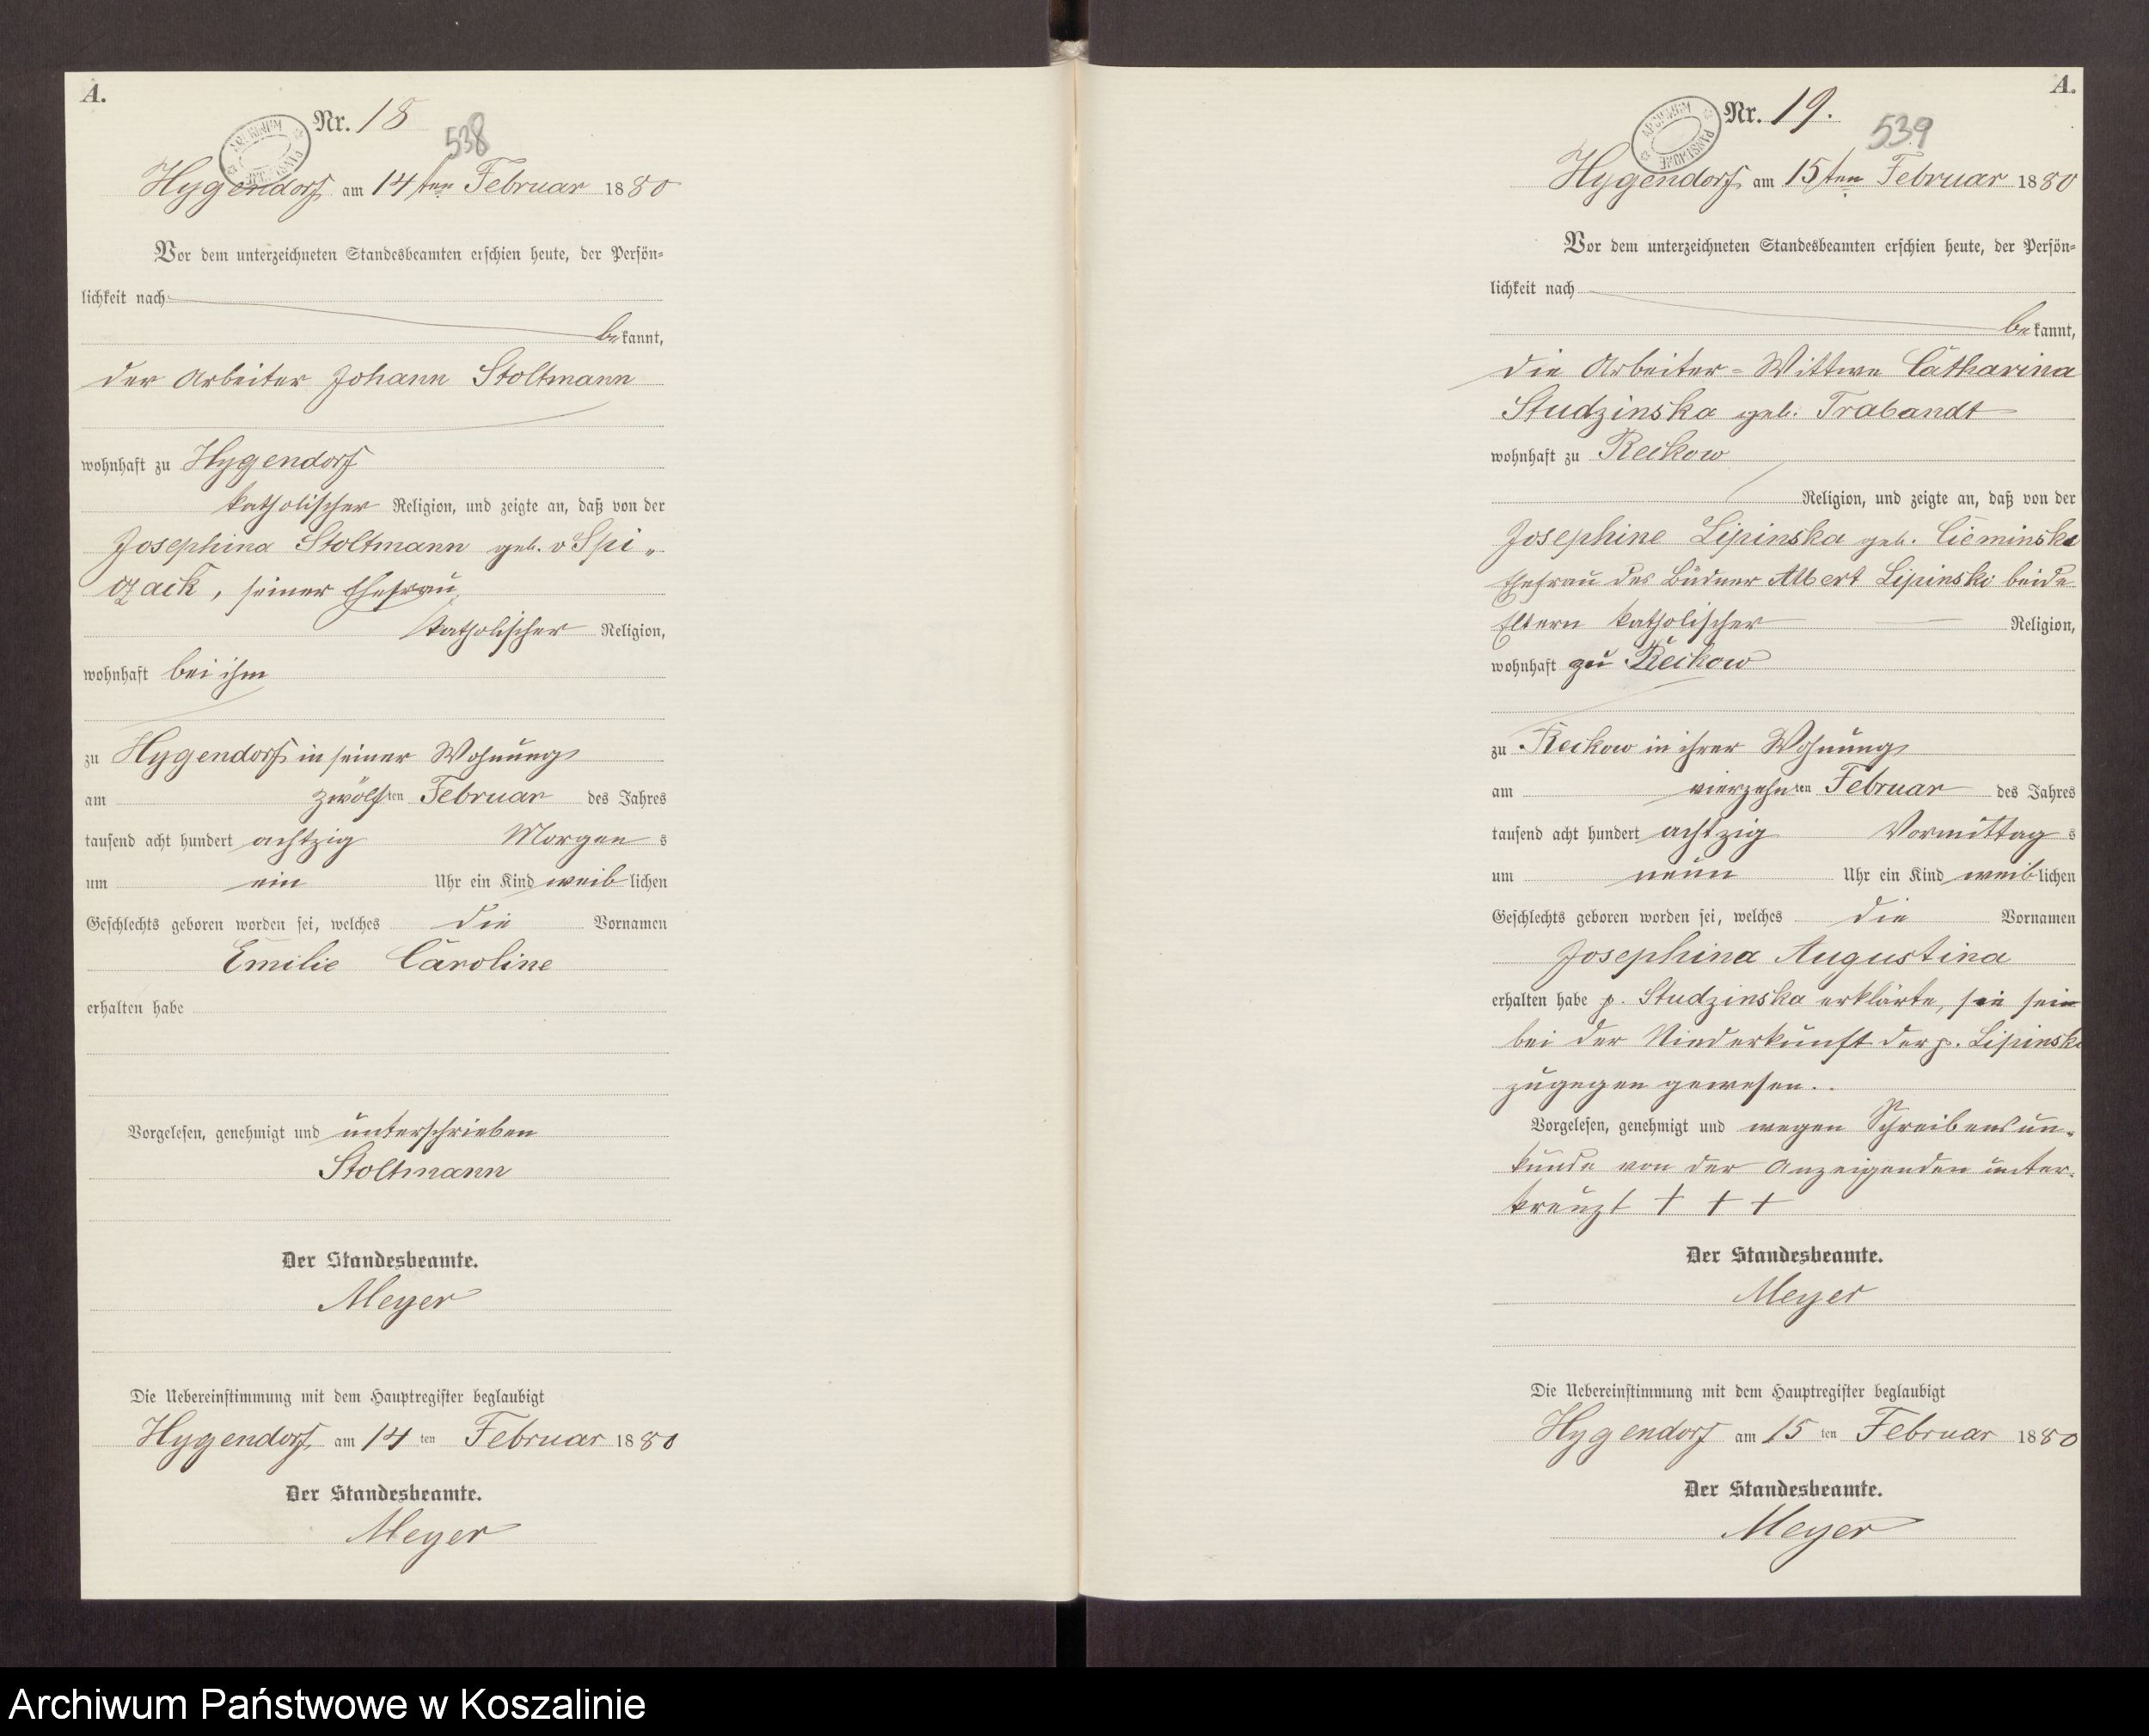 A.
Nr. 18
538
Hygendorf am 14ten Februar 1880
Vor dem unterzeichneten Standesbeamten erschien heute, der Persön-
lichkeit nach
bekannt,
der Arbeiter Johann Stoltmann
wohnhaft zu Hygendorf
katholischer Religion, und zeigte an, daß von der
Josephina Stoltmann geb. v Spi-
czack, seiner Ehefrau
katholischer Religion,
wohnhaft bei ihm
zu Hygendorf in seiner Wohnung
am zwölften Februar des Jahres
tausend acht hundert achtzig Morgens
um ein Uhr ein Kind weiblichen
Geschlechts geboren worden sei, welches die Vornamen
Emilie Caroline
erhalten habe
Vorgelesen, genehmigt und unterschrieben
Stoltmann
Der Standesbeamte.
Meyer
Die Uebereinstimmung mit dem Hauptregister beglaubigt
Hygendorf am 14ten Februar 1880
Der Standesbeamte.
Meyer
A.
Nr. 19.
539
Hygendorf am 15ten Februar 1880
Vor dem unterzeichneten Standesbeamten erschien heute, der Persön-
lichkeit nach
bekannt,
die Arbeiter-Wittwe Catharina
Studzinska geb. Trabandt
wohnhaft zu Reckow
Religion, und zeigte an, daß von der
Josephine Lipinska geb. Cieminska
Ehefrau des Büdner Albert Lipinski beide
Eltern katholischer Religion,
wohnhaft zu Reckow
zu Reckow in ihrer Wohnung
am vierzehnten Februar des Jahres
tausend acht hundert achtzig Vormittags
um neun Uhr ein Kind weiblichen
Geschlechts geboren worden sei, welches die Vornamen
Josephina Augustina
erhalten habe p. Studzinska erklärte, sie sei
bei der Niederkunft der p. Lipinska
zugegen gewesen.
Vorgelesen, genehmigt und wegen Schreibensun-
kunde von der Anzeigenden unter-
kreuzt + + +
Der Standesbeamte.
Meyer
Die Uebereinstimmung mit dem Hauptregister beglaubigt
Hygendorf am 15ten Februar 1880
Der Standesbeamte.
Meyer
Archiwum Państwowe w Koszalinie